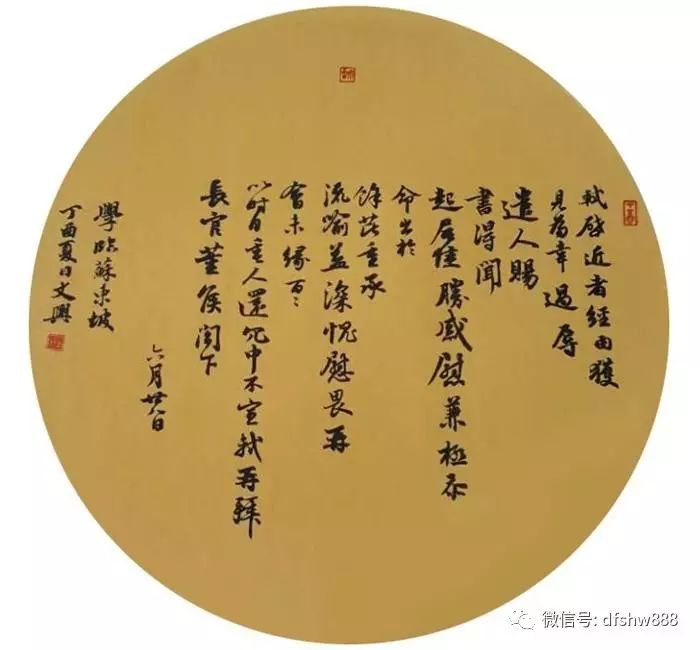 軾啓近者經由獲
見爲幸過辱
遣人賜
書得聞
起居佳勝感慰兼極忝
命出於
餘芘重承
流喻益深愧慰畏再
會未緣萬萬
以時自重人還冗中不宣軾再拜
長官董侯閤下
六月廿八日
學臨蘇東坡
丁酉夏日文興
微信号: dfshw888